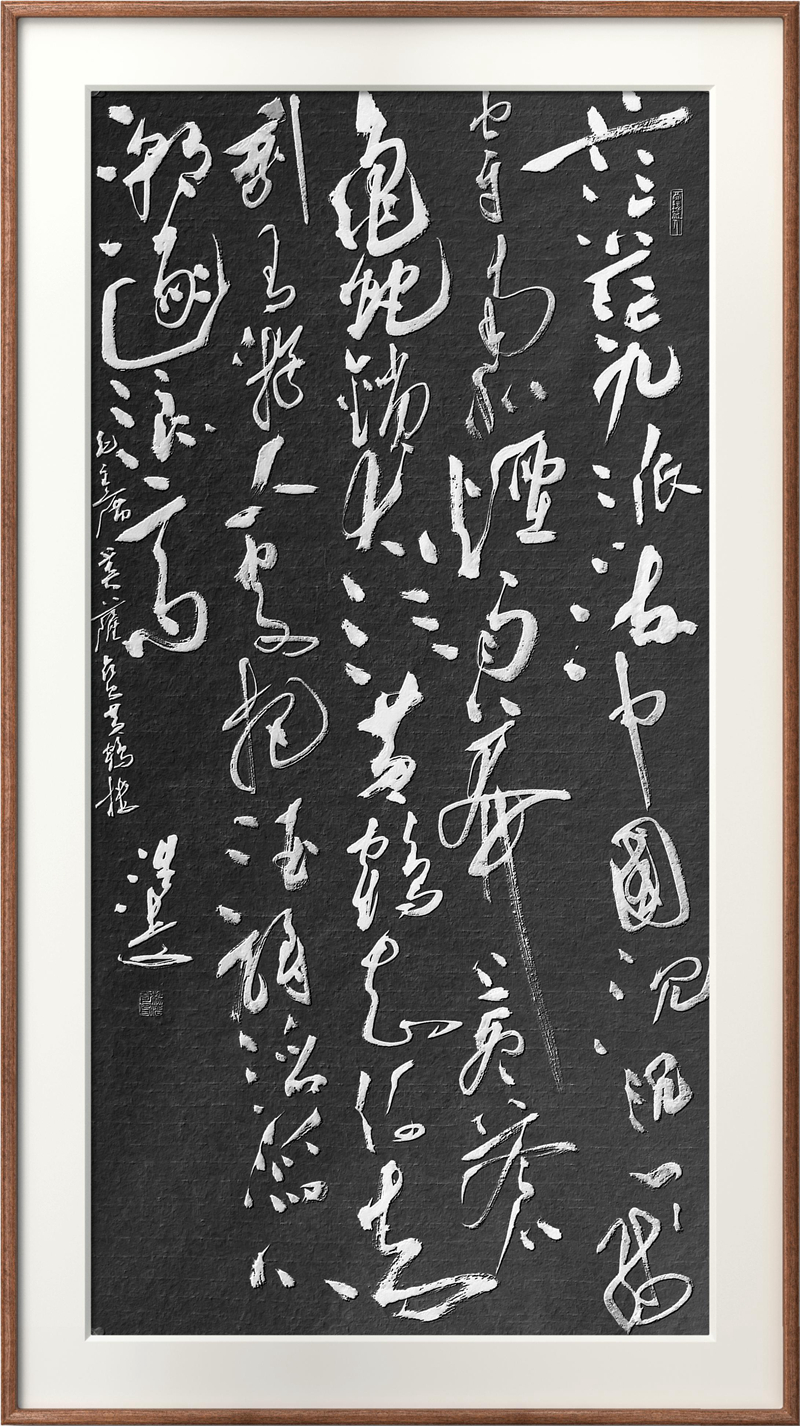 茫茫九派流中國沉沉一线
穿南北煙雨莽蒼蒼
龜蛇鎖大江黃鶴知何去
剩有遊人處把酒酹滔滔心
潮逐浪高
毛主席菩薩蛮黄鶴楼